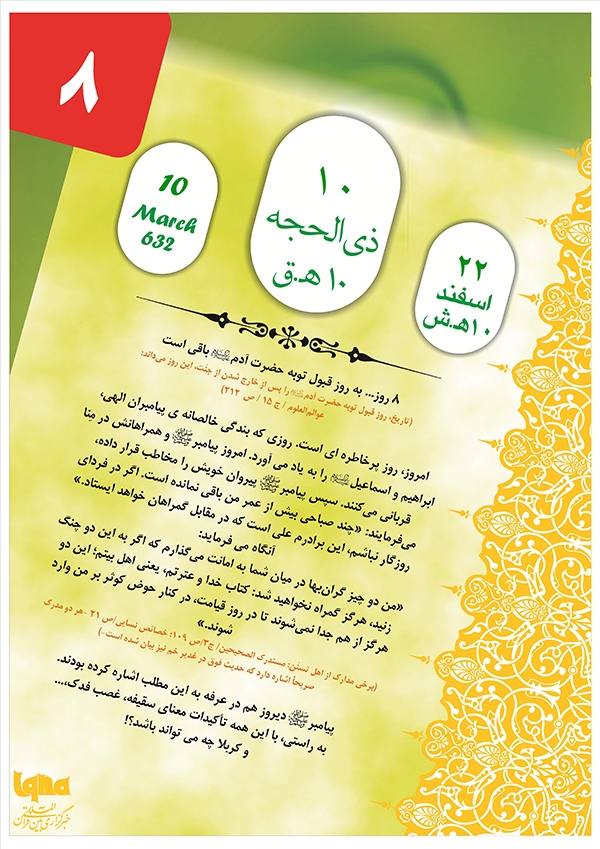 ۸
10
March
632
۱۰
ذی‌الحجه
۱۰ هـ.ق
۲۲
اسفند
۱۰هـ.ش
۸ روز... به روز قبول توبه حضرت آدم باقی است
(تاریخ، روز قبول توبه حضرت آدم را پس از خارج شدن از جنت، این روز می‌داند:
عوالم‌العلوم / ج ۱۵ / ص ۲۱۲)
امروز، روز پرخاطره ای است. روزی که بندگی خالصانه ی پیامبران الهی،
ابراهیم و اسماعیل را به یاد می آورد. امروز پیامبر و همراهانش در منا
قربانی می‌کنند. سپس پیامبر پیروان خویش را مخاطب قرار داده،
می‌فرمایند: «چند صباحی بیش از عمر من باقی نمانده است. اگر در فردای
روزگار نباشم، این برادرم علی است که در مقابل گمراهان خواهد ایستاد.»
آنگاه می فرماید:
«من دو چیز گران‌بها در میان شما به امانت می‌گذارم که اگر به این دو چنگ
زنید، هرگز گمراه نخواهید شد: کتاب خدا و عترتم، یعنی اهل بیتم؛ این دو
هرگز از هم جدا نمی‌شوند تا در روز قیامت، در کنار حوض کوثر بر من وارد
شوند.»
(برخی مدارک از اهل تسنن: مستدرک الصحیحین/ ج۳/ص ۱۰۹؛ خصائص نسایی/ص ۲۱ -هر دو مدرک
صریحاً اشاره دارد که حدیث فوق در غدیر خم نیز بیان شده است-)
پیامبر دیروز هم در عرفه به این مطلب اشاره کرده بودند.
به راستی، با این همه تأکیدات معنای سقیفه، غصب فدک،...
و کربلا چه می تواند باشد؟!
iqna
خبرگزاری بین المللی قرآن